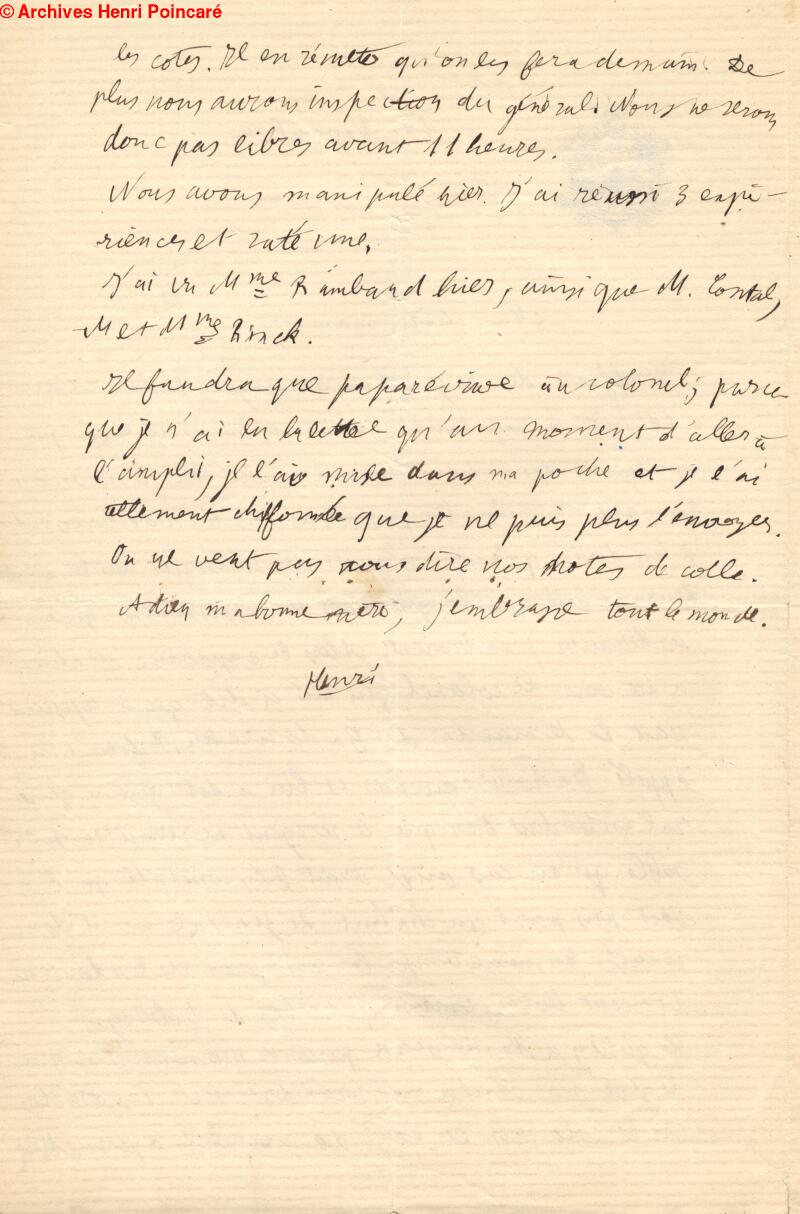 © Archives Henri Poincaré
les cotes. Il en résulte qu'on les fera demain. De
plus nous aurons inspection du général. Nous ne serons
donc pas libres avant 11 heures.
Nous avons manipulé hier. J'ai réussi 3 expé-
riences et raté une.
J'ai vu Mme Rambaud hier, ainsi que M.
M et Mme Rinck.
Il faudra que papa récrive au colonel; parce
que je n'ai eu la lettre qu'au moment d'aller à
l'amphi, je l'ai mise dans ma poche et je l'ai
tellement chiffonnée que je ne puis plus l'envoyer.
On ne veut pas nous dire nos notes de colle.
Adieu ma bonne mère, j'embrasse tout le monde.
Henri